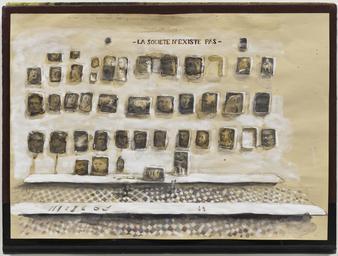 - LA SOCIETE N'EXISTE PAS -